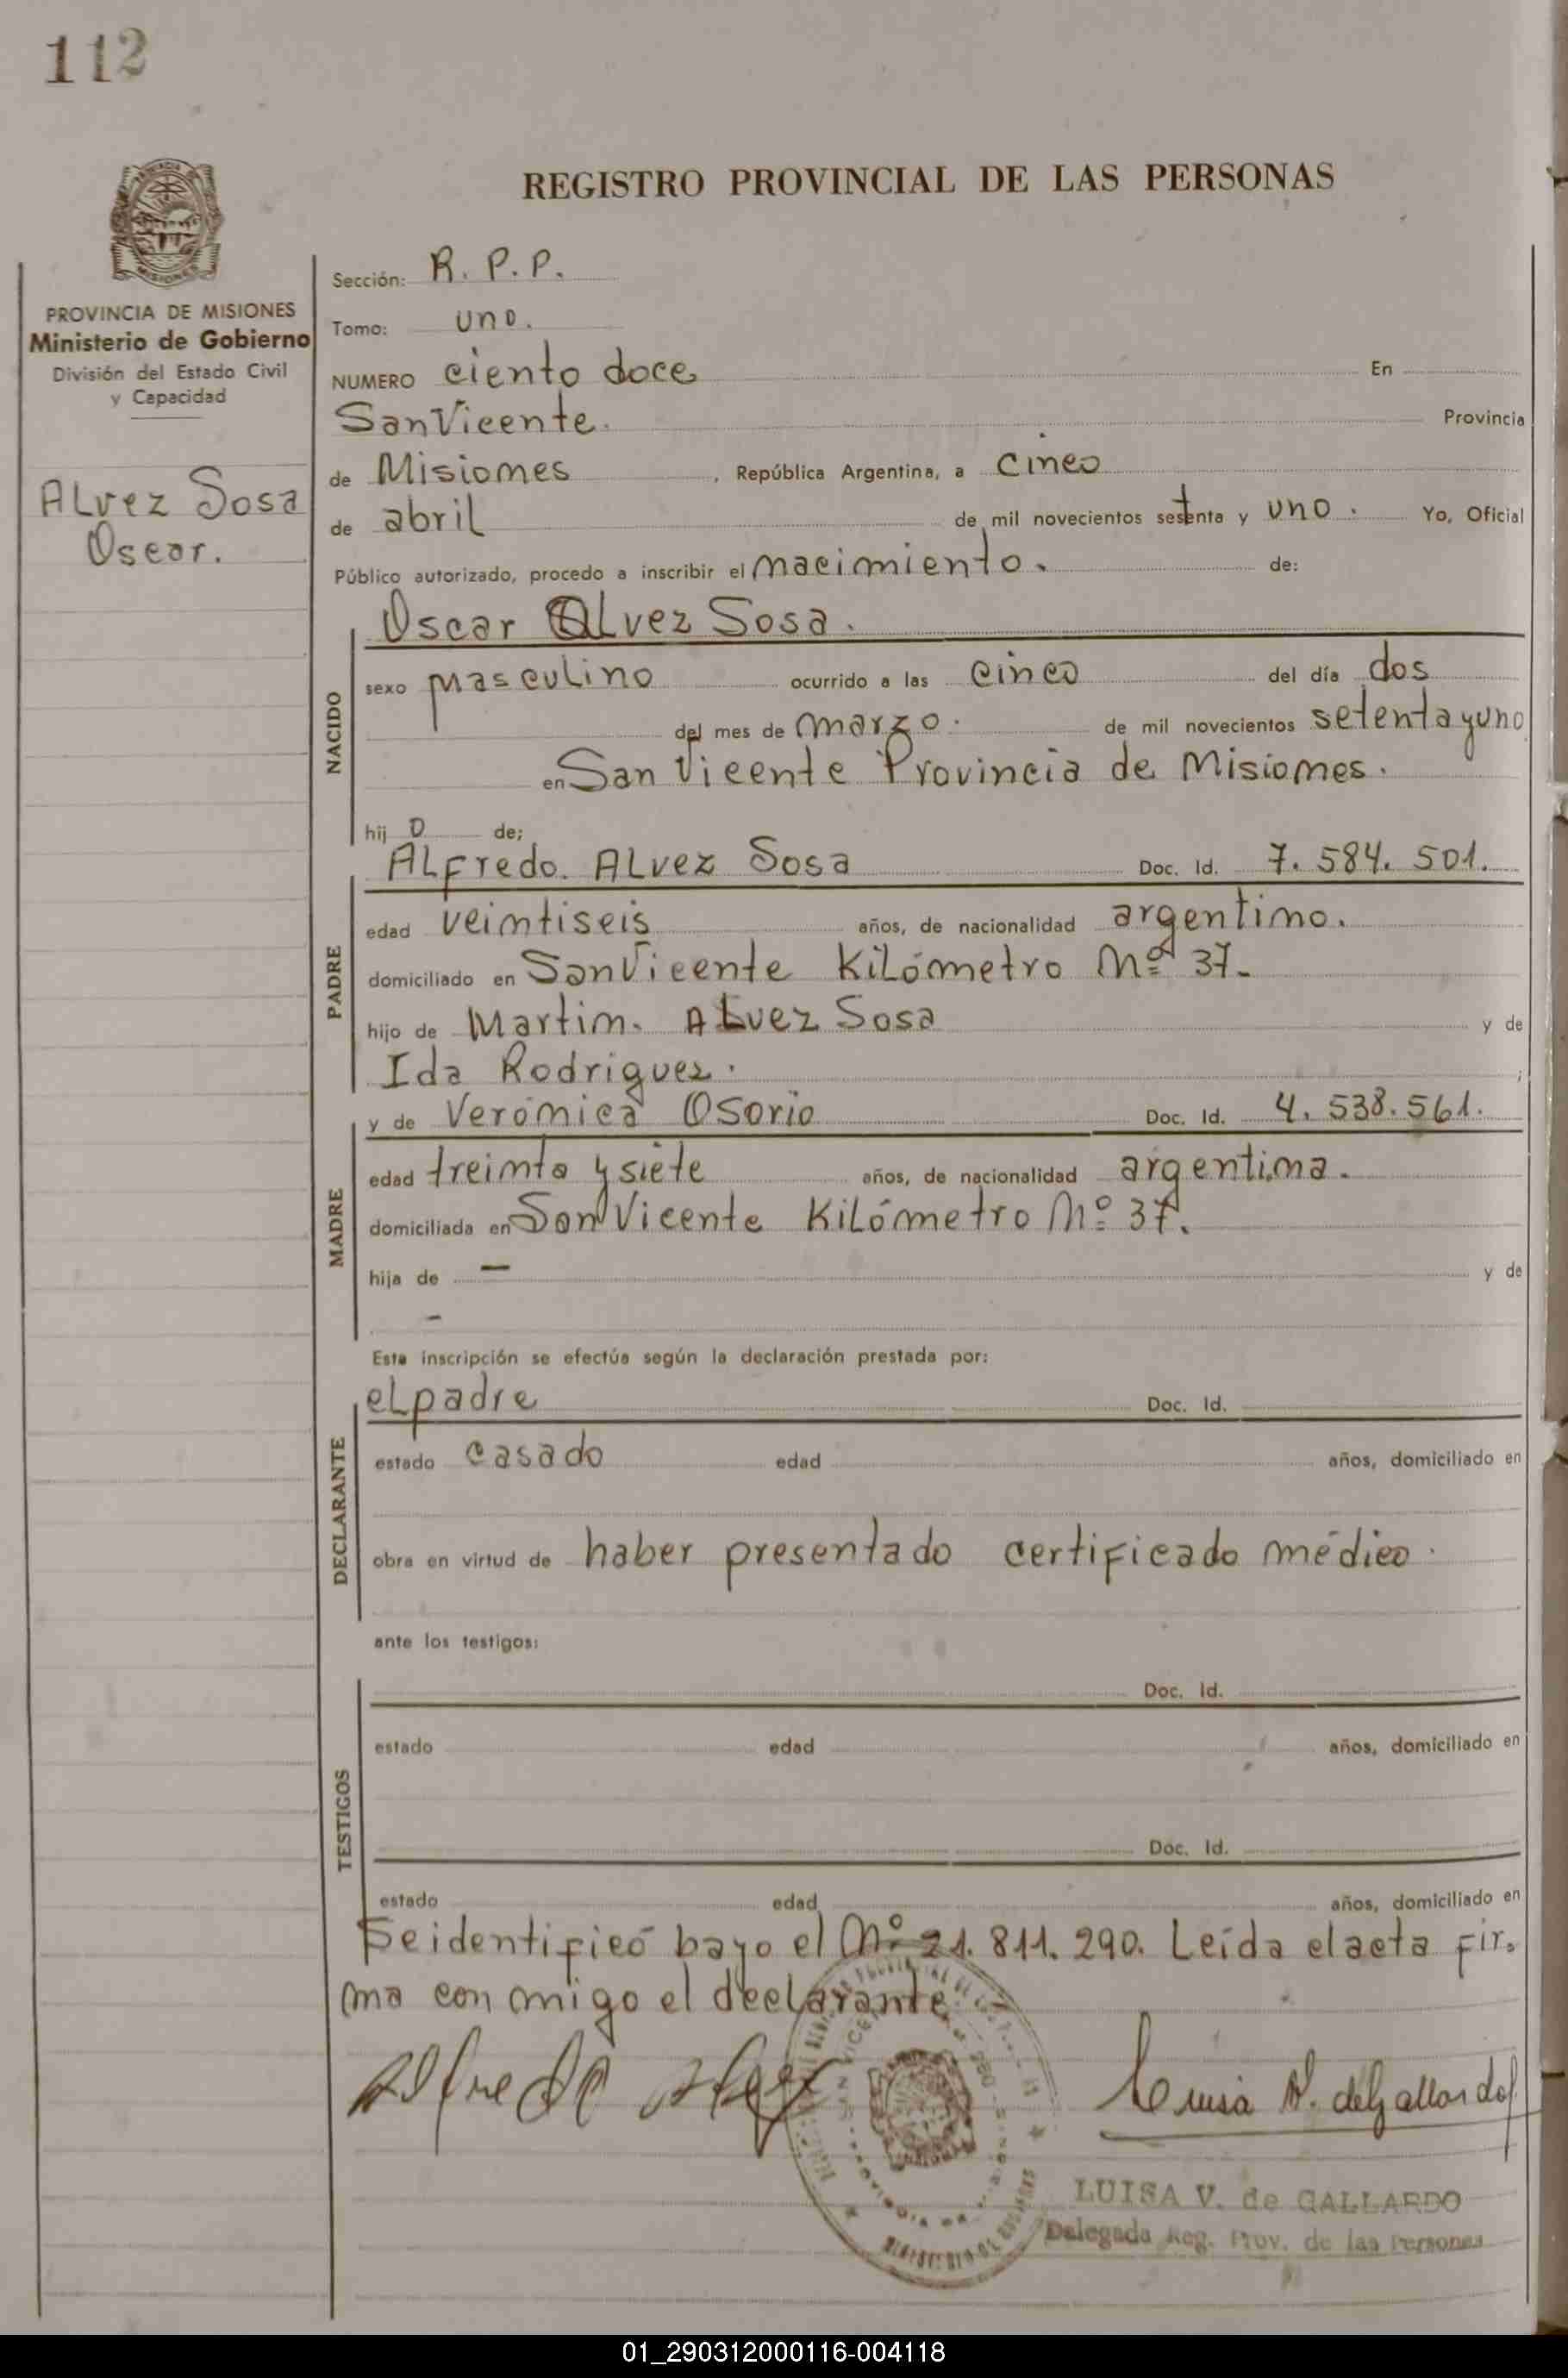 112
REGISTRO PROVINCIAL DE LAS PERSONAS
PROVINCIA DE MISIONES
Ministerio de Gobierno
División del Estado Civil
y Capacidad
Alvez Sosa
Oscar.
Sección: R. P. P.
Tomo: uno.
NUMERO ciento doce En
San Vicente. Provincia
de Misiones, República Argentina, a cinco
de abril de mil novecientos setenta y uno. Yo, Oficial
Público autorizado, procedo a inscribir el nacimiento. de:
Oscar Alvez Sosa.
NACIDO
sexo masculino ocurrido a las cinco del día dos
del mes de marzo. de mil novecientos setenta y uno
en San Vicente Provincia de Misiones.
hijo de;
Alfredo. Alvez Sosa Doc. Id. 7.584.501.
PADRE
edad veintiseis años, de nacionalidad argentino.
domiciliado en San Vicente Kilómetro Nº 37.
hijo de Martin. Alvez Sosa y de
Ida Rodriguez. ;
y de Verónica Osorio Doc. Id. 4.538.561.
MADRE
edad treinta y siete años, de nacionalidad argentina.
domiciliada en San Vicente Kilómetro Nº 37.
hija de — y de
-
Esta inscripción se efectúa según la declaración prestada por:
el padre Doc. Id.
DECLARANTE
estado casado edad años, domiciliado en
obra en virtud de haber presentado certificado médico.
ante los testigos:
Doc. Id.
TESTIGOS
estado edad años, domiciliado en
Doc. Id.
estado edad años, domiciliado en
Se identificó bajo el Nº 21.811.290. Leída el acta fir.
ma conmigo el declarante
Alfredo Alvez
Luisa V. de Gallardo
LUISA V. de GALLARDO
Delegada Reg. Prov. de las Personas
01_290312000116-004118